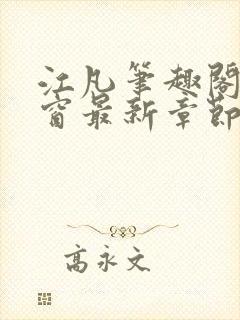 江凡笔趣阁
窗最新章节
高永文